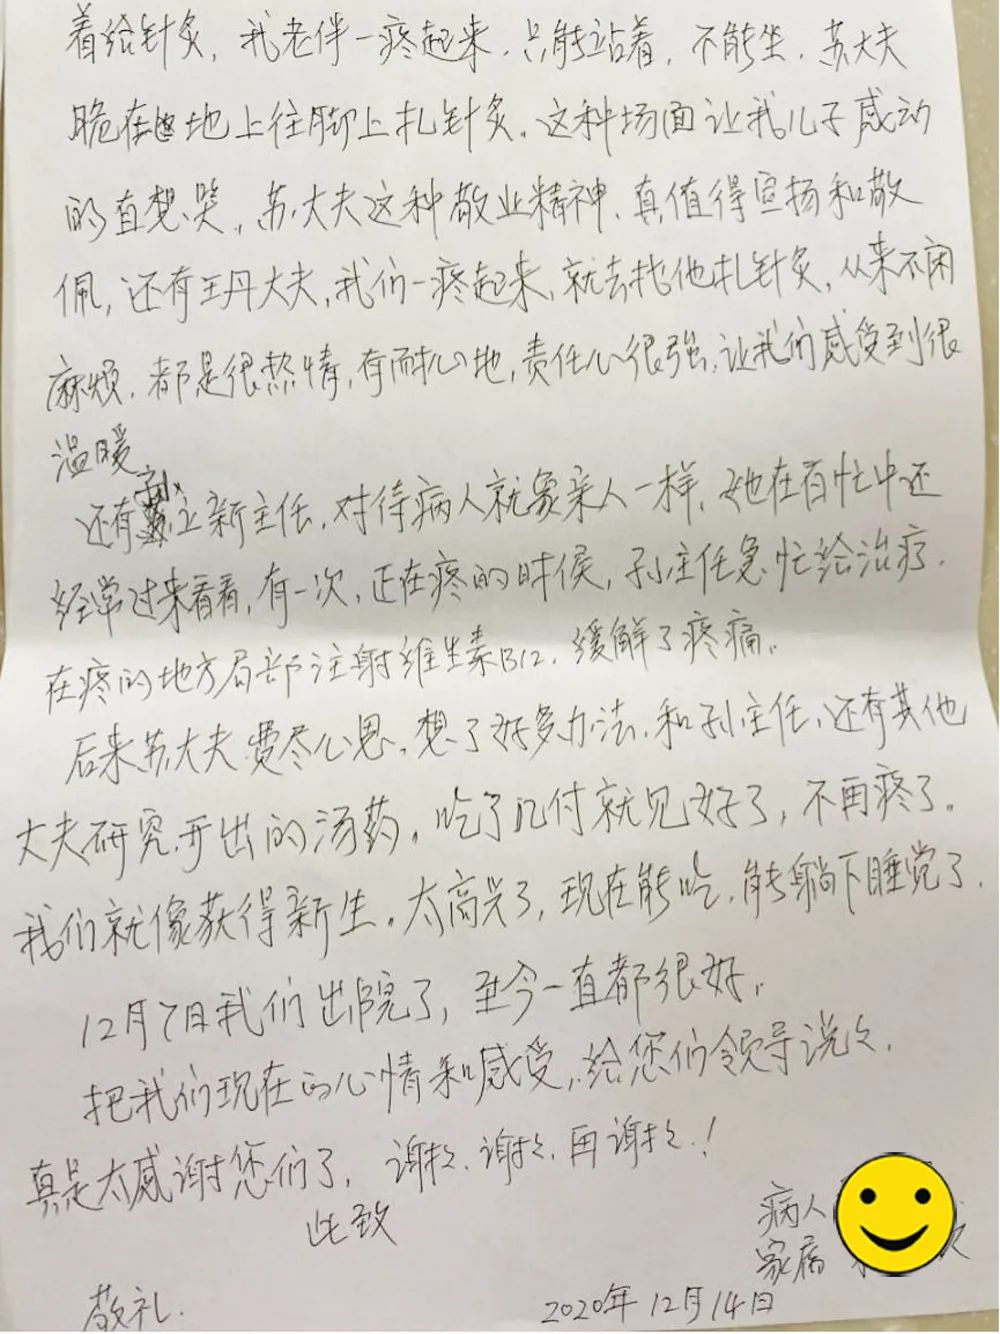 着给针灸，我老伴一疼起来，只能站着，不能坐，苏大夫
脆在地上往脚上扎针灸。这种场面让我儿子感动
的直想哭，苏大夫这种敬业精神、真值得宣扬和敬
佩，还有王丹大夫，我们一疼起来，就去找他扎针灸，从来不闲
麻烦，都是很热情，有耐心地，责任心很强，让我们感受到很
温暖
还有孙立新主任，对待病人就象亲人一样，她在百忙中还
经常过来看看，有一次，正在疼的时候，孙主任急忙给治疗．
在疼的地方局部注射维生素B12，缓解了疼痛。
后来苏大夫费尽心思，想了好多办法，和孙主任，还有其他
大夫研究开出的汤药，吃了几付就见好了，不再疼了。
我们就像获得新生。太高兴了，现在能吃，能躺下睡觉了．
12月7日我们出院了，至今一直都很好．
把我们现在的心情和感受，给您们领导说说．
真是太感谢您们了，谢谢、谢谢、再谢谢！
此致
病人
家属
敬礼．
2020年12月14日